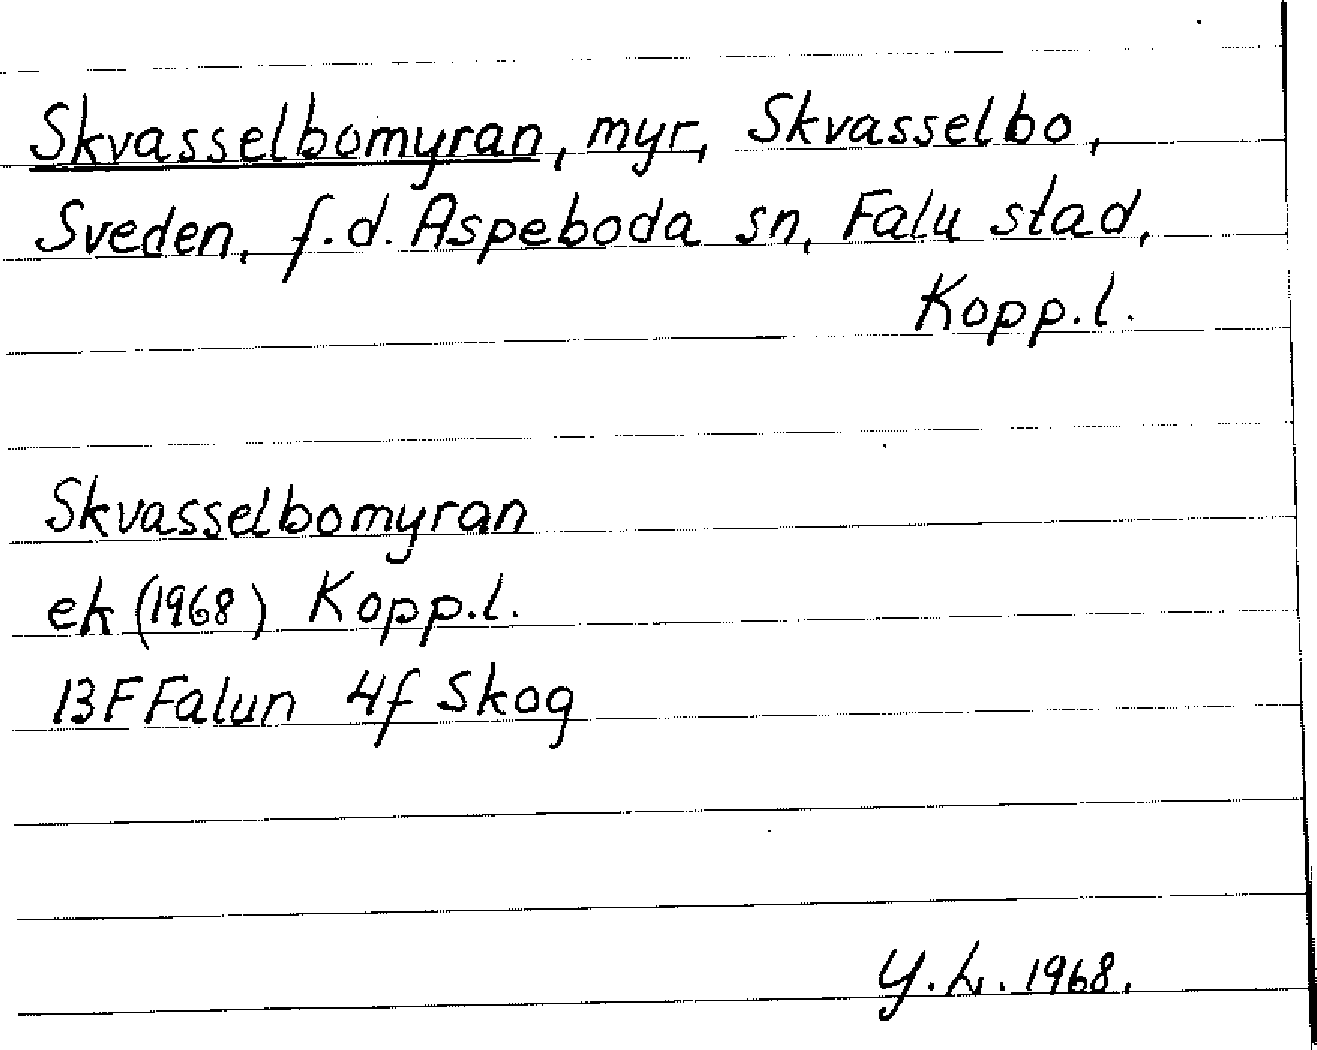 Skvasselbomyran, myr, Skvasselbo,
Sveden, f.d. Aspeboda sn, Falu stad,
Kopp.l.
Skvasselbomyran
ek (1968) Kopp.l.
13F Falun 4f Skog
Y.L. 1968.